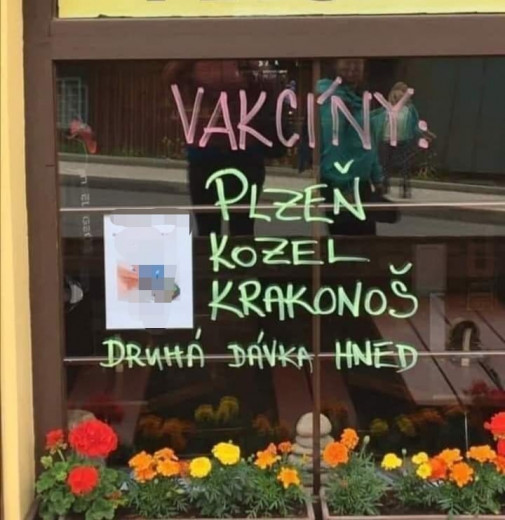 VAKCÍNY:
PLZEŇ
KOZEL
KRAKONOŠ
DRUHÁ DÁVKA HNED